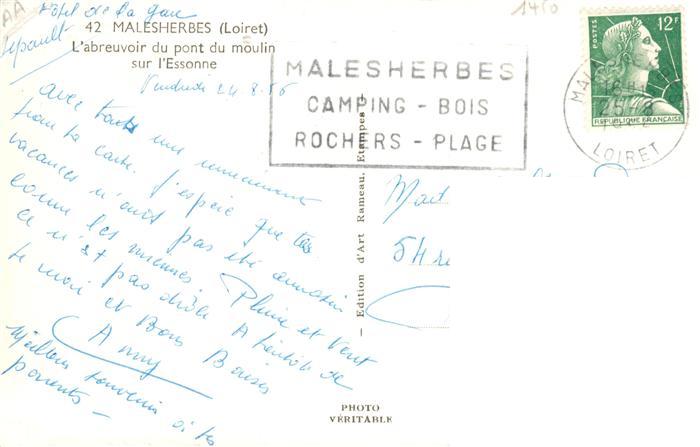 Hôtel de la Gare
42 MALESHERBES (Loiret)
L'abreuvoir du pont du moulin
sur l'Essonne
Vendredi 24.8.56
Avec toute mes remerciement
pour ta carte. J'espère que tes
vacances n'ont pas été
comme les miennes. Pluie et Vent
ce n'est pas drôle A bientôt de
te voir et Bons Baisers
Amy
Meilleur souvenir à tes
parents -
MALESHERBES
CAMPING - BOIS
ROCHERS - PLAGE
POSTES
12F
REPUBLIQUE FRANÇAISE
LOIRET
1450
AA
— Edition d'Art Rameau, Etampes —
54 r
PHOTO
VÉRITABLE